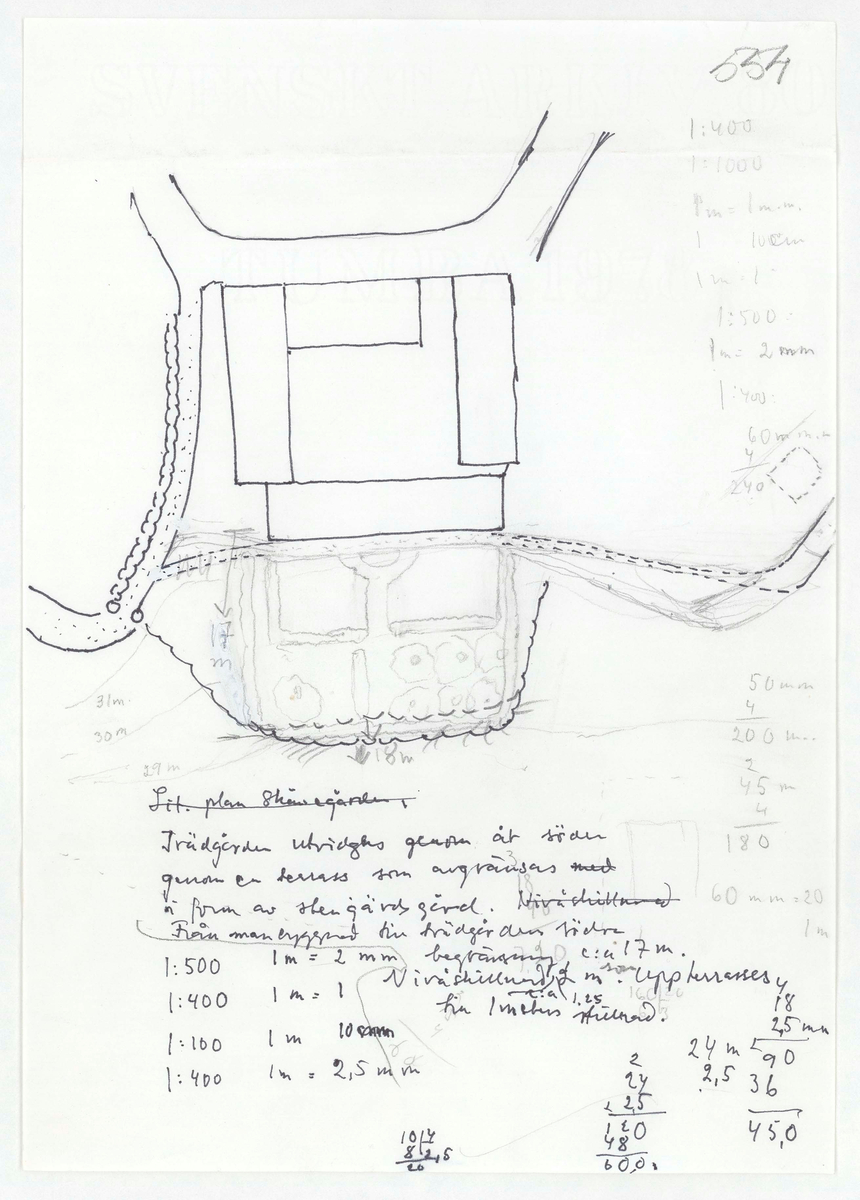 554
1:400
1:1000
1m = 1 m.m.
1 10cm
1m = 1
1:500
1m = 2 mm
1:400:
60 m.m.
4
240
17
m
31m.
30m
29m
18m
50 mm
4
200 m..
2
45 m
4
180
60 mm = 20
1m
Sit. plan Skånegården.
Trädgården utvidgas genom åt söder
genom en terrass som avgränsas med
i form av stengärdsgård. Nivåskillnad
Från manbyggnad till trädgården södra
begränsning c:a 17 m.
Nivåskillnad 2 m. som uppterrasses
c:a 1,25
till 1 meters skillnad.
1:500 1m = 2 mm
1:400 1m = 1
1:100 1m 10mm
1:400 1m = 2,5 mm
4
18
2,5 mm
90
36
45,0
24 m
2,5
2
24
2,5
120
48
60,0
10/4
8 2,5
20